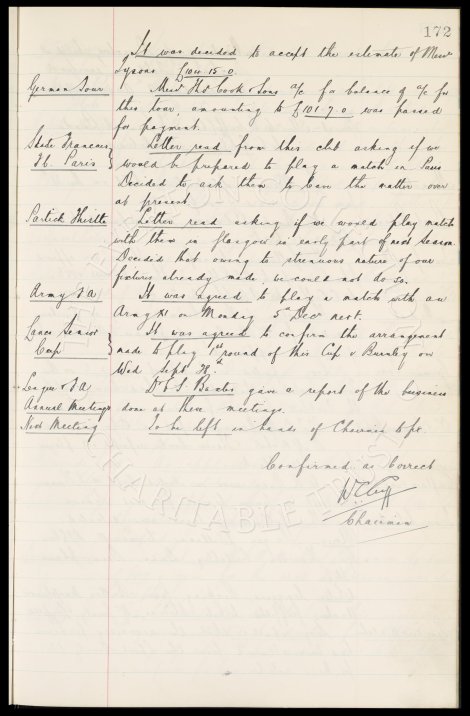 172
It was decided to accept the estimate of Messrs
Tysons £100 15 0.
German Tour Messrs Thos Cook & Sons a/c for balance of a/c for
this tour, amounting to £101. 7. 0 was passed
for payment.
Stade Francais Letter read from this club asking if we
Fb. Paris would be prepared to play a match in Paris
Decided to ask them to leave the matter over
at present
Partick Thistle Letter read asking if we would play match
with them in Glasgow in early part of next season
Decided that owing to strenuous nature of our
fixtures already made, we could not do so.
Army F A It was agreed to play a match with an
Army XI on Monday 5th Decr next.
Lancs Senior It was agreed to confirm the arrangement
Cup made to play 1st round of this Cup v Burnley on
Wed Sept 28.
League & F A Dr Baxter gave a report of the business
Annual Meetings done at these meetings.
Next Meeting To be left in hands of Chairman to fix.
Confirmed as Correct
W C Cuff
Chairman
CHARITABLE TRUST